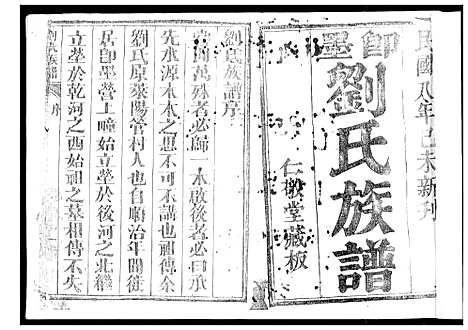 民國八年己未新刊
即墨
劉氏族譜
仁敬堂藏板
劉氏族譜序
萬殊者必歸一本啟後者必曰承
先水源木本之思不可不講也祖傳余
劉氏原萊陽管村人也自順治年間徙
居即墨營上疃始立塋於後河之北繼
立塋於乾河之西始祖之墓相傳不失
序